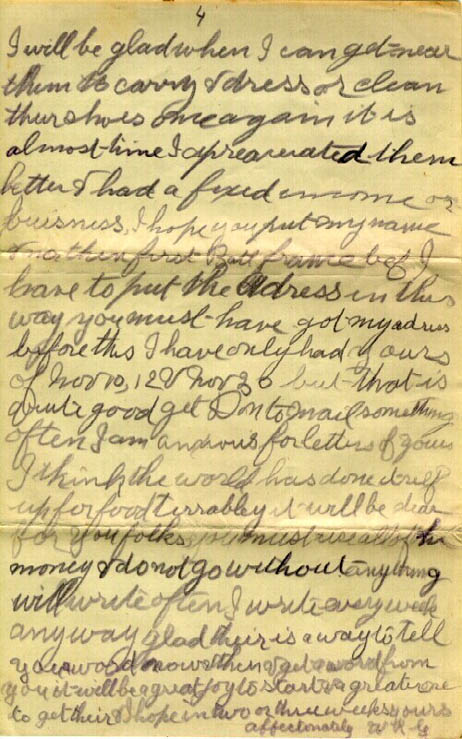 4
I will be glad when I can get near
them to carry & dress or clean
thur shoes once again it is
almost time I apreacerated them
better & had a fixed income or
buisness, I hope you put my name
first Batt france bef I
have to put the Adress in this
way you must have got my adress
before this I have only had yours
of Nov 10, 12 & Nov 30 but that is
quite good get Don to mail something
often I am anxious for letters of yours
I think the world has done itself
up for food terrabley it will be dear
for you folks, you must use all of the
money & do not go without anything
will write often I write every week
anyway glad their is a way to tell
you a word now & then & get a word from
you it will be a great joy to start & a greater one
to get their & I hope in two or three weeks yours
affectionately W R G